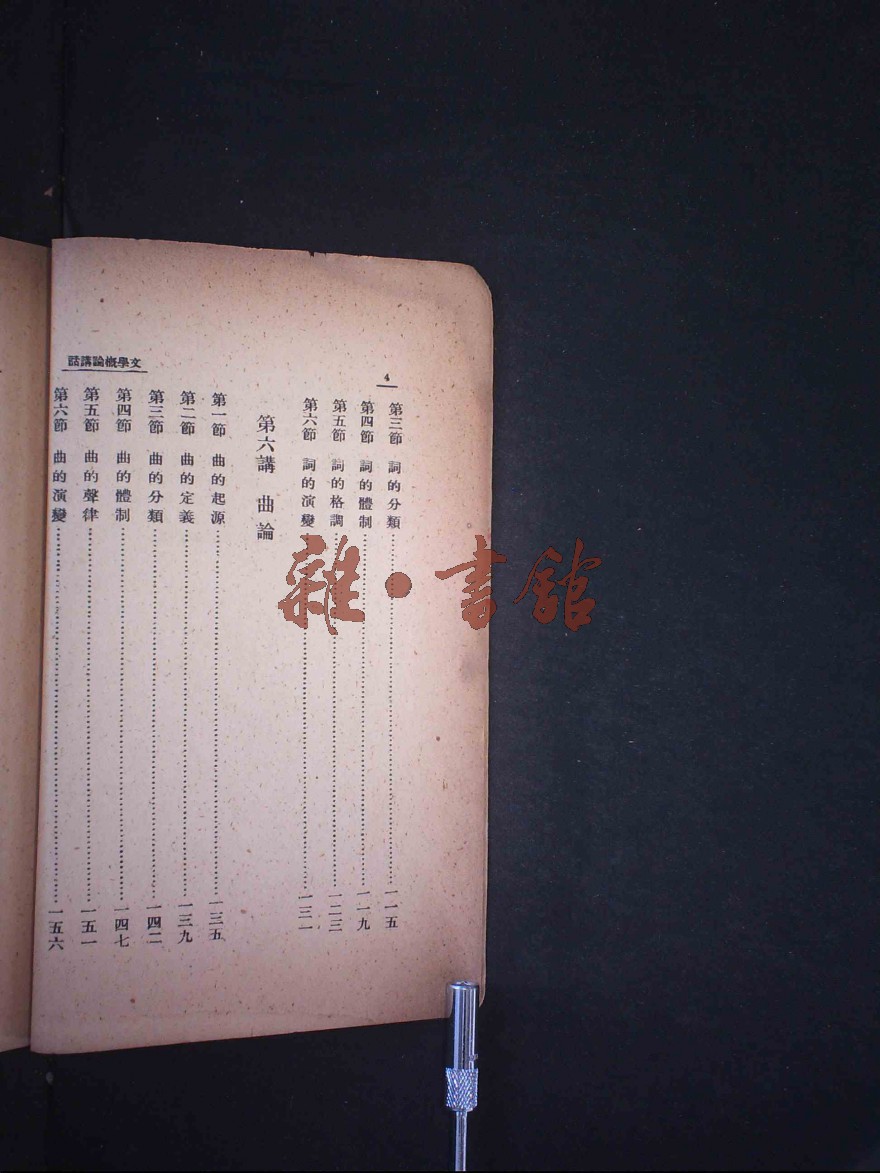 文學概論講話
4
第三節 詞的分類⋯⋯一一五
第四節 詞的體制⋯⋯一一九
第五節 詞的格調⋯⋯一二三
第六節 詞的演變⋯⋯一三一
第六講 曲論
第一節 曲的起源⋯⋯一三五
第二節 曲的定義⋯⋯一三九
第三節 曲的分類⋯⋯一四二
第四節 曲的體制⋯⋯一四七
第五節 曲的聲律⋯⋯一五一
第六節 曲的演變⋯⋯一五六
雜·書館